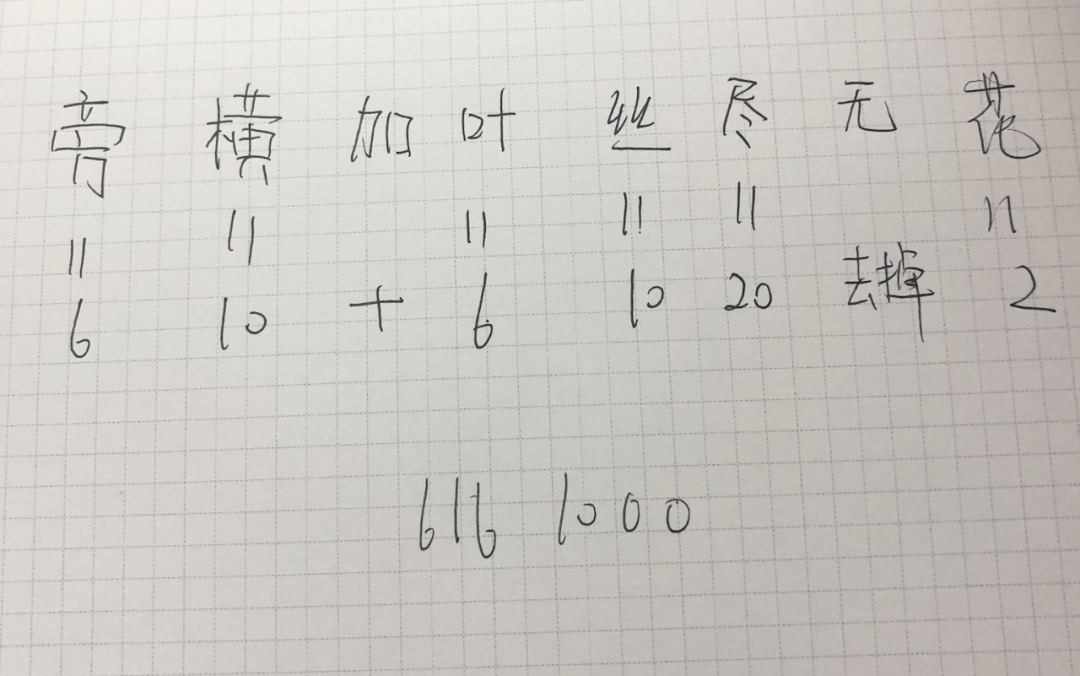 亮 横 加 叶 丝 尽 无 花
= = = = = =
6 10 + 6 10 20 去掉 2
616 1000